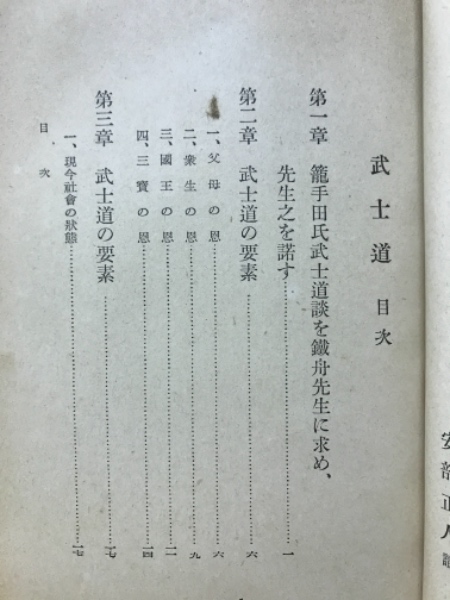 武士道 目次
第一章 籠手田氏武士道談を鐵舟先生に求め、
先生之を諾す……一
第二章 武士道の要素……六
一、父母の恩……六
二、衆生の恩……九
三、國王の恩……一一
四、三寶の恩……一四
第三章 武士道の要素……一七
一、現今社會の狀態……一七
目次
安部正人